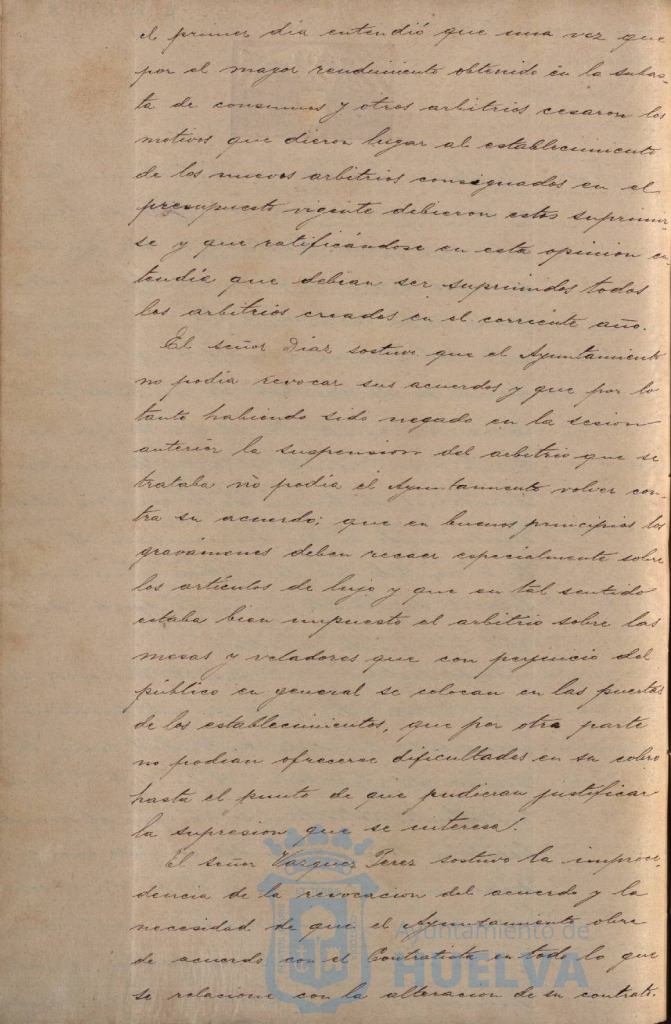 el primer dia entendió que una vez que
por el mayor rendimiento obtenido en la subas-
ta de consumos y otros arbitrios cesaron los
motivos que dieron lugar al establecimiento
de los nuevos arbitrios consignados en el
presupuesto vigente debieron estos suprimir-
se y que ratificándose en esta opinion en
tendia que debian ser suprimidos todos
los arbitrios creados en el corriente año.
El señor Diaz sostuvo que el Ayuntamiento
no podia revocar sus acuerdos y que por lo
tanto habiendo sido negado en la sesion
anterior la suspension del arbitrio que se
trataba no podia el Ayuntamiento volver con-
tra su acuerdo; que en buenos principios los
gravámenes deben recaer especialmente sobre
los artículos de lujo y que en tal sentido
estaba bien impuesto el arbitrio sobre las
mesas y veladores que con perjuicio del
público en general se colocan en las puertas
de los establecimientos, que por otra parte
no podian ofrecerse dificultades en su cobro
hasta el punto de que pudieran justificar
la supresion que se interesa.
El señor Vazquez Perez sostuvo la improce-
dencia de la revocacion del acuerdo y la
necesidad de que el Ayuntamiento obre
de acuerdo con el Contratista en todo lo que
se relacione con la alteracion de su contrato.
Ayuntamiento de
HUELVA